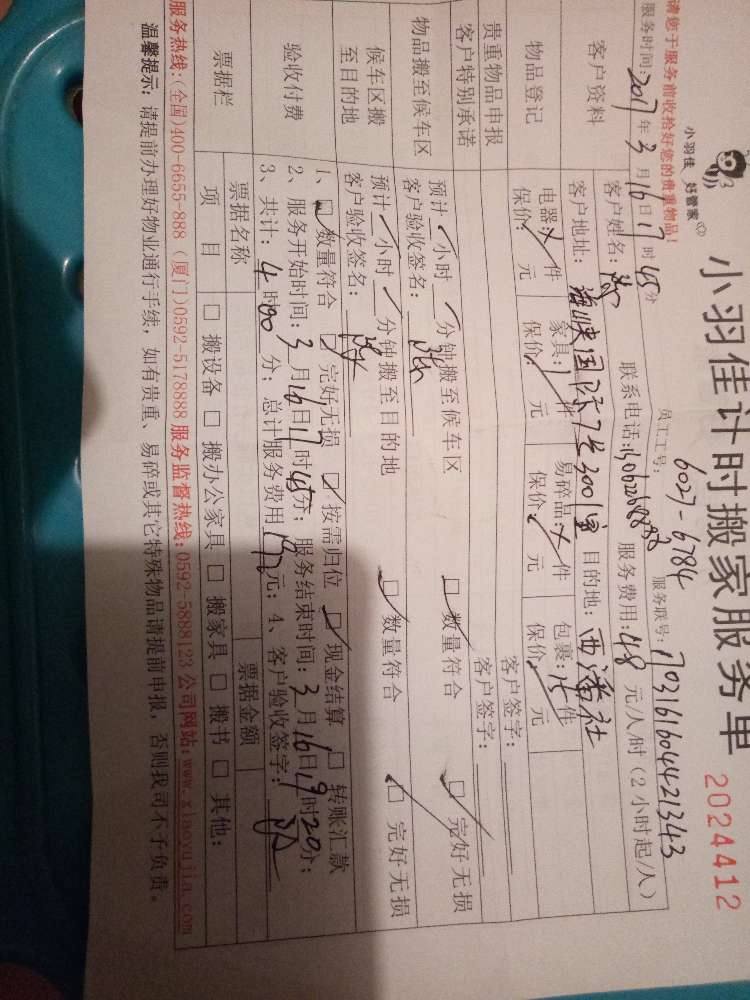 小羽佳 好管家
小羽佳计时搬家服务单
2024412
请您于服务前收拾好您的贵重物品!
员工工号: 6027-6784 服务联号: 1703161604421343
服务时间: 2017 年 3 月 16 日 17 时 45 分
客户资料
客户姓名: 联系电话: 服务费用: 48 元/人/时 (2小时起/人)
客户地址: 海峡国际 3001室 目的地: 西潘社
物品登记
电器: 件 家具: 件 易碎品: 件 包裹: 15 件
保价: 元 保价: 元 保价: 元 保价: 元
贵重物品申报
客户签字:
客户特别承诺
客户签字:
物品搬至候车区
预计 小时 分钟搬至候车区 数量符合 完好无损
客户验收签名:
候车区搬至目的地
预计 小时 分钟搬至目的地 数量符合 完好无损
客户验收签名:
验收付费
1、 数量符合 完好无损 按需归位 现金结算 转账汇款
2、服务开始时间: 3 月 16 日 17 时 45 分; 服务结束时间: 3 月 16 日 19 时 20 分;
3、共计: 4 时 00 分; 总计服务费用 192 元; 4、客户验收签字:
票据栏
票据名称 票据金额
项目 搬设备 搬办公家具 搬家具 搬书 其他:
服务热线: (全国)400-6655-888 (厦门)0592-5178888 服务监督热线: 0592-5888123 公司网站: www.xiaoyujia.com
温馨提示: 请提前办理好物业通行手续, 如有贵重、易碎或其它特殊物品请提前申报, 否则我司不予负责。